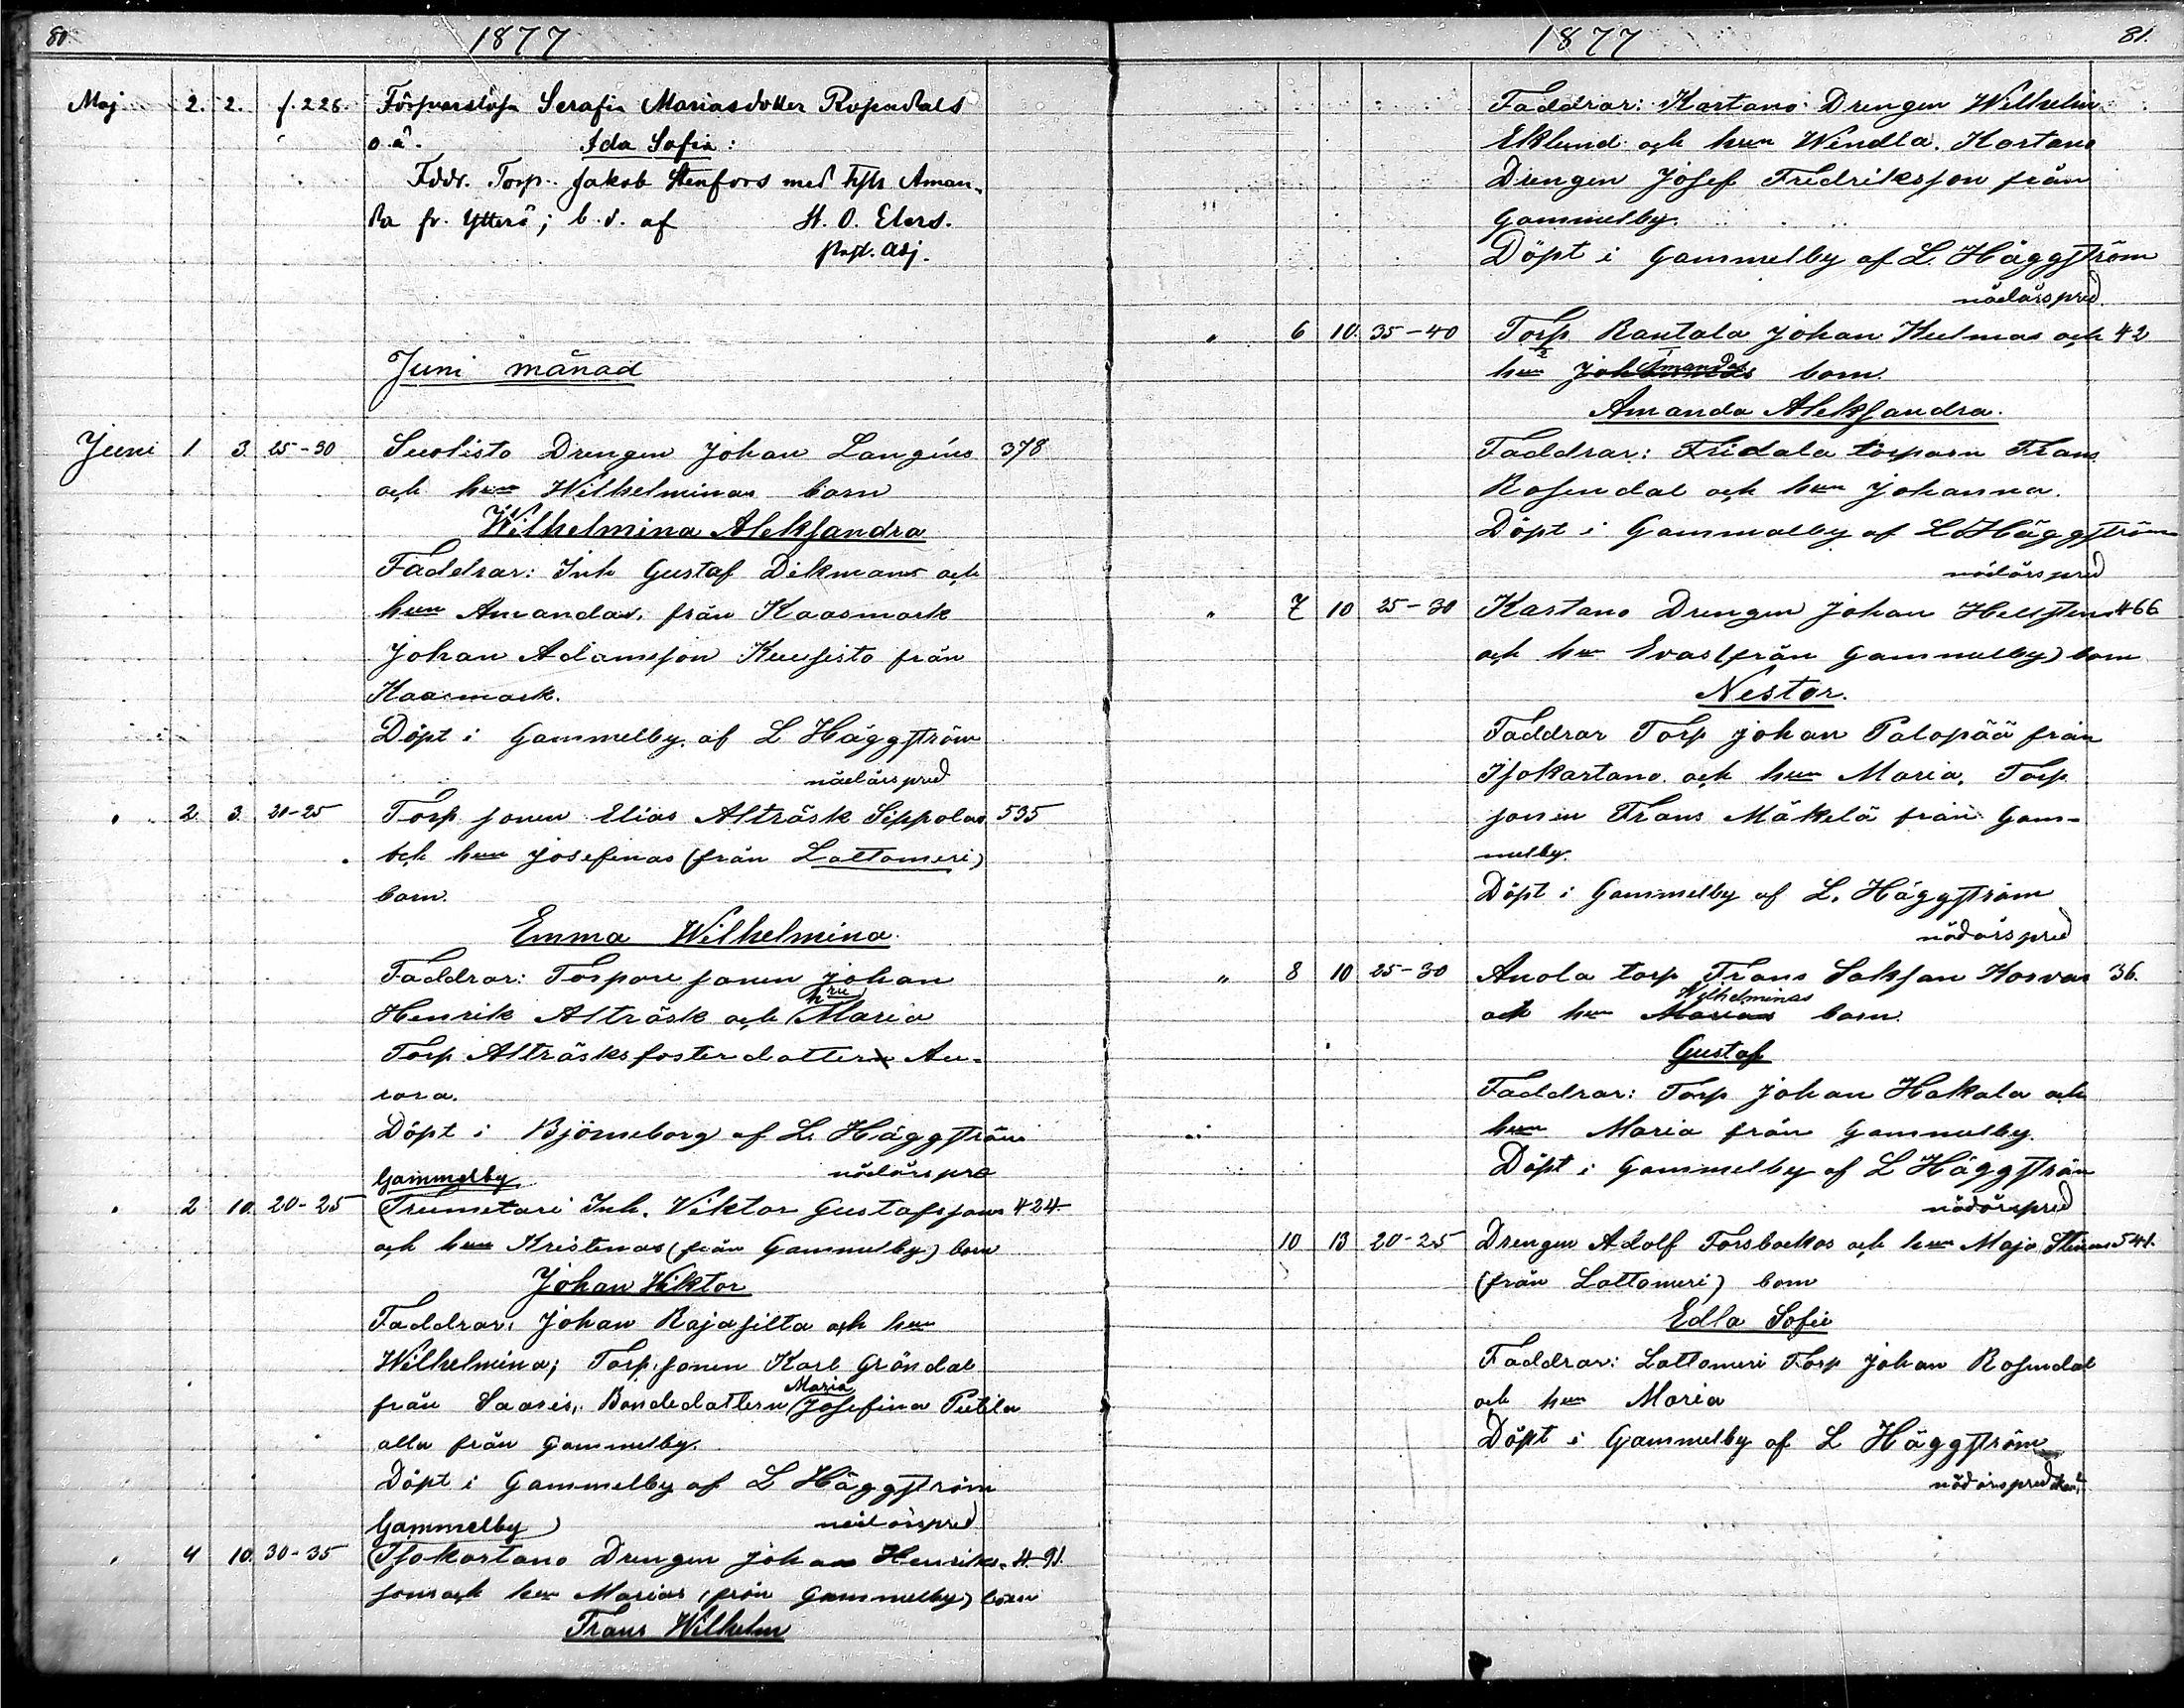 80.
1877
Maj 2. 2. f. 226. Försvarslösa Serafia Mariasdotter Rosendals
o.ä. Ida Sofia:
Fddr. Torp. Jakob Stenfors med hstr Aman-
da fr. Ytterö; b. d. af H. O. Elers.
past. adj.
Juni månad
Juni 1 3. 25-30 Suolisto Drengen Johan Langéns 378
och hun Wilhelminas barn
Wilhelmina Aleksandra
Faddrar: Inh Gustaf Dikmans och
hun Amandas, från Kaasmark
Johan Adamsson Kuusisto från
Kaasmark.
Döpt i Gammelby af L Häggström
nödårspred
" 2 3. 20-25 Torp sonen Elias Alträsk Sippolas 535
och hun Josefinas (från Lattomeri)
barn.
Emma Wilhelmina.
Faddrar: Torpare sonen Johan
Henrik Alträsk och hru Maria
Torp Alträsks fosterdottern Au-
rora.
Döpt i Björneborg af L. Häggström
Gammelby nödårspre
" 2 10. 20-25 Trumetari Inh. Viktor Gustafssons 424
och hun Kristinas (från Gammelby) barn
Johan Viktor
Faddrar, Johan Rajasilta och hun
Wilhelmina; Torp. sonen Karl Gröndal
från Saaris, Bondedottern Maria Josefina Putila
alla från Gammelby.
Döpt i Gammelby af L Häggström
Gammelby nödårspred
" 4 10. 30-35 Isokartano Drengen Johan Henriks- 491.
sons och hun Marias (från Gammelby) barn
Frans Wilhelm
1877
81.
Faddrar: Kartano Drengen Wilhelm
Eklund och hun Wendla. Kartano
Drengen Josef Fredriksson från
Gammelby.
Döpt i Gammelby af L. Häggström
nödårspred.
" 6 10. 35-40 Torp Rantala Johan Kulmas och 42
hun Amandas barn.
Amanda Aleksandra.
Faddrar: Fridala torparn Frans
Rosendal och hun Johanna.
Döpt i Gammalby af L Häggström
nödårspred
" 7 10 25-30 Kartano Drengen Johan Hellstens 466
och hun Evas (från Gammelby) barn
Nestor.
Faddrar Torp Johan Palopää från
Isokartano och hun Maria, Torp
sonen Frans Mäkelä från Gam-
melby.
Döpt i Gammelby af L. Häggström
nödårspred
" 8 10 25-30 Anola torp Frans Saksan Korvas 36.
och hun Marias Wilhelminas barn.
Gustaf
Faddrar: Torp Johan Hakala och
hun Maria från Gammelby.
Döpt i Gammelby af L Häggström
nödårspred
10 13 20-25 Drengen Adolf Forsbackas och hun Maja Stinas 541.
(från Lattomeri) barn
Edla Sofie
Faddrar: Lattomeri Torp Johan Rosendal
och hun Maria
Döpt i Gammelby af L Häggström
nödårspredikant